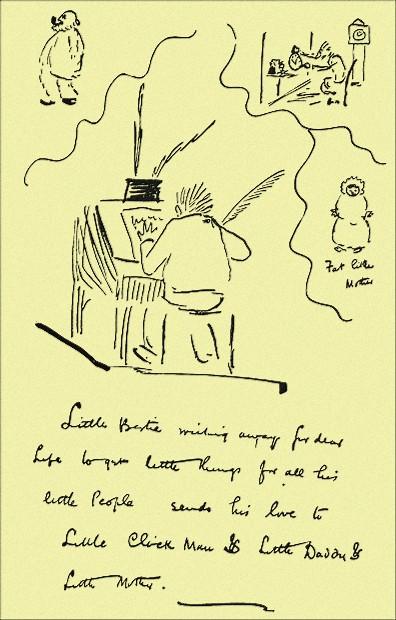 Fat little
Mother
Little Bertie writing away for dear
life to get little things for all his
little People sends his love to
Little Clock Man & Little Daddy &
Little Mother.